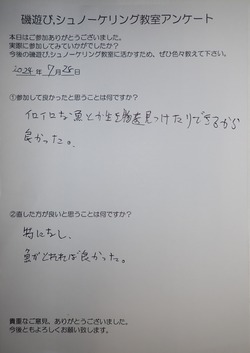 磯遊び,シュノーケリング教室アンケート
本日はご参加ありがとうございました。
実際に参加してみていかがでしたか?
今後の磯遊び,シュノーケリング教室に活かすため、ぜひ色々教えて下さい。
2024年 7月25日
①参加して良かったと思うことは何ですか?
イロイロな魚とか生き物を見つけたりできるから
良かった。
②直した方が良いと思うことは何ですか?
特になし、
魚がとれれば良かった。
貴重なご意見、ありがとうございました。
今後ともよろしくお願い致します。